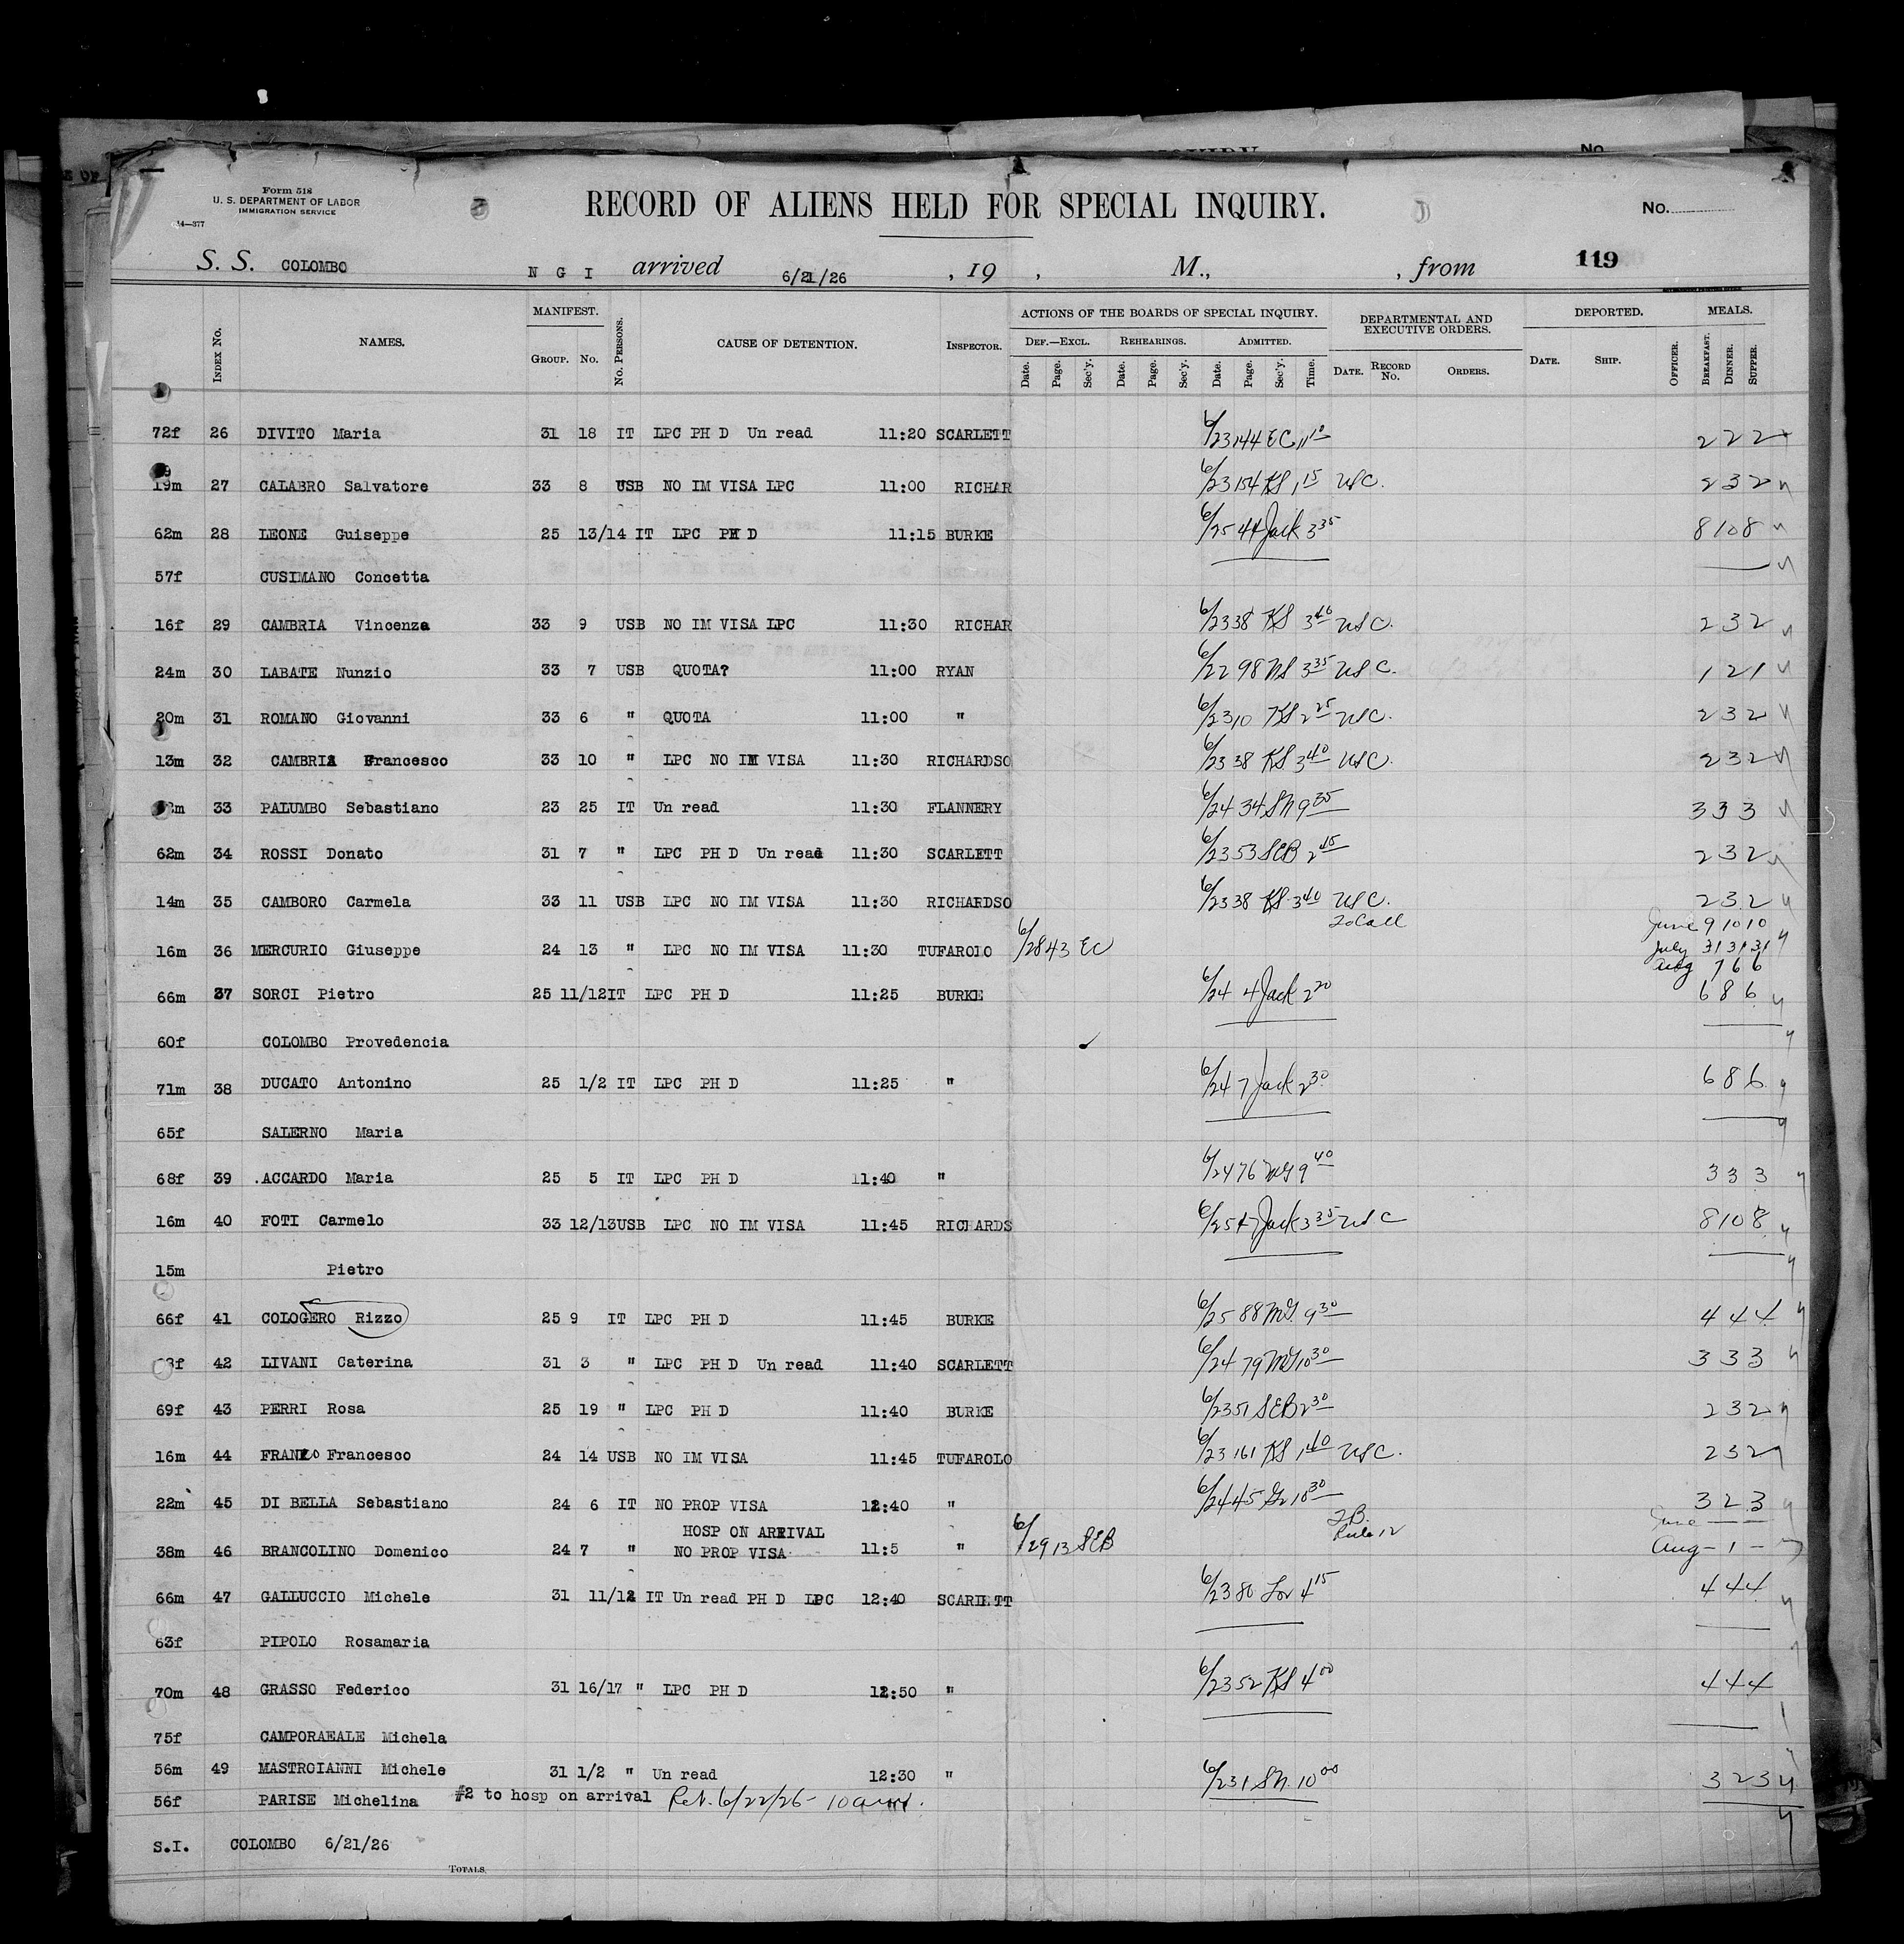 Form 518
U. S. DEPARTMENT OF LABOR
IMMIGRATION SERVICE
14—377
RECORD OF ALIENS HELD FOR SPECIAL INQUIRY.
No.
S. S. COLOMBO N G I arrived 6/21/26 , 19 , M., , from 119
Index No. NAMES. MANIFEST. Group. No. No. Persons. CAUSE OF DETENTION. Inspector. ACTIONS OF THE BOARDS OF SPECIAL INQUIRY. Def.—Excl. Date. Page. Sec'y. Rehearings. Date. Page. Sec'y. Admitted. Date. Page. Sec'y. Time. DEPARTMENTAL AND EXECUTIVE ORDERS. Date. Record No. Orders. DEPORTED. Date. Ship. Officer. MEALS. Breakfast. Dinner. Supper.
72f 26 DIVITO Maria 31 18 IT LPC PH D Un read 11:20 SCARLETT 6/23 144 EC 11 10 2 2 2
19m 27 CALABRO Salvatore 33 8 USB NO IM VISA LPC 11:00 RICHAR 6/23 154 KS 1 15 USC. 2 3 2
62m 28 LEONE Guiseppe 25 13/14 IT LPC PH D 11:15 BURKE 6/25 44 Jack 3 35 8 10 8
57f CUSIMANO Concetta
16f 29 CAMBRIA Vincenza 33 9 USB NO IM VISA LPC 11:30 RICHAR 6/23 38 KS 3 40 USC. 2 3 2
24m 30 LABATE Nunzio 33 7 USB QUOTA? 11:00 RYAN 6/22 98 NS 3 35 USC. 1 2 1
20m 31 ROMANO Giovanni 33 6 " QUOTA 11:00 " 6/23 10 KS 2 25 USC. 2 3 2
13m 32 CAMBRIA Francesco 33 10 " LPC NO IM VISA 11:30 RICHARDSO 6/23 38 KS 3 40 USC. 2 3 2
33 PALUMBO Sebastiano 23 25 IT Un read 11:30 FLANNERY 6/24 34 SN 9 35 3 3 3
62m 34 ROSSI Donato 31 7 " LPC PH D Un read 11:30 SCARLETT 6/23 53 SEB 2 45 2 3 2
14m 35 CAMBORO Carmela 33 11 USB LPC NO IM VISA 11:30 RICHARDSO 6/23 38 KS 3 40 USC. 2 3 2
June 9 10 10
16m 36 MERCURIO Giuseppe 24 13 " LPC NO IM VISA 11:30 TUFAROLO 6/28 43 EC July 31 31 31
Aug 7 6 6
66m 37 SORCI Pietro 25 11/12 IT LPC PH D 11:25 BURKE 6/24 4 Jack 2 20 6 8 6
60f COLOMBO Provedencia
71m 38 DUCATO Antonino 25 1/2 IT LPC PH D 11:25 " 6/24 7 Jack 2 30 6 8 6
65f SALERNO Maria
68f 39 .ACCARDO Maria 25 5 IT LPC PH D 11:40 " 6/24 76 McG 9 40 3 3 3
16m 40 FOTI Carmelo 33 12/13 USB LPC NO IM VISA 11:45 RICHARDS 6/25 47 Jack 3 35 USC 8 10 8
15m Pietro
66f 41 COLOGERO Rizzo 25 9 IT LPC PH D 11:45 BURKE 6/25 88 McG. 9 30 4 4 4
42 LIVANI Caterina 31 3 " LPC PH D Un read 11:40 SCARLETT 6/24 79 McG 10 30 3 3 3
69f 43 PERRI Rosa 25 19 " LPC PH D 11:40 BURKE 6/23 51 SEB 2 30 2 3 2
16m 44 FRANCO Francesco 24 14 USB NO IM VISA 11:45 TUFAROLO 6/23 161 KS 1 40 USC. 2 3 2
22m 45 DI BELLA Sebastiano 24 6 IT NO PROP VISA 12:40 " 6/24 45 10 30 3 2 3
HOSP ON ARRIVAL Rule 12 June — —
38m 46 BRANCOLINO Domenico 24 7 " NO PROP VISA 11:5 " 6/29 13 SEB Aug – 1 –
66m 47 GALLUCCIO Michele 31 11/12 IT Un read PH D LPC 12:40 SCARLETT 6/23 80 4 15 4 4 4
63f PIPOLO Rosamaria
70m 48 GRASSO Federico 31 16/17 " LPC PH D 12:50 " 6/23 52 KS 4 00 4 4 4
75f CAMPORAEALE Michela
56m 49 MASTROIANNI Michele 31 1/2 " Un read 12:30 " 6/23 1 SN. 10 00 3 2 3
56f PARISE Michelina #2 to hosp on arrival Ret. 6/22/26 – 10 am.
S.I. COLOMBO 6/21/26
Totals.